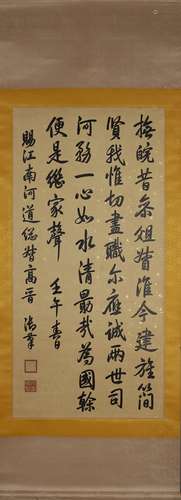 撫皖昔參俎督淮今建旌簡
賢我惟切盡職尔應誠兩世司
河務一心如水清勗哉為國榦
便是繼家聲 壬午春日
賜江南河道總督高晉 御筆